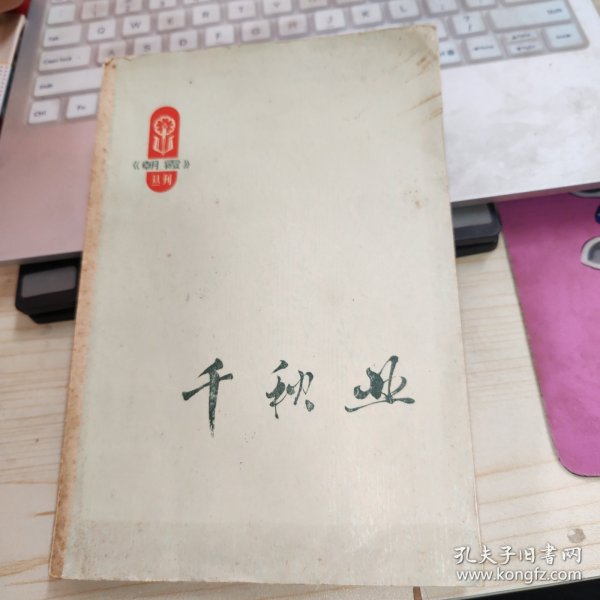 《朝霞》
丛刊
千秋业
孔夫子旧书网
www.kongfz.com